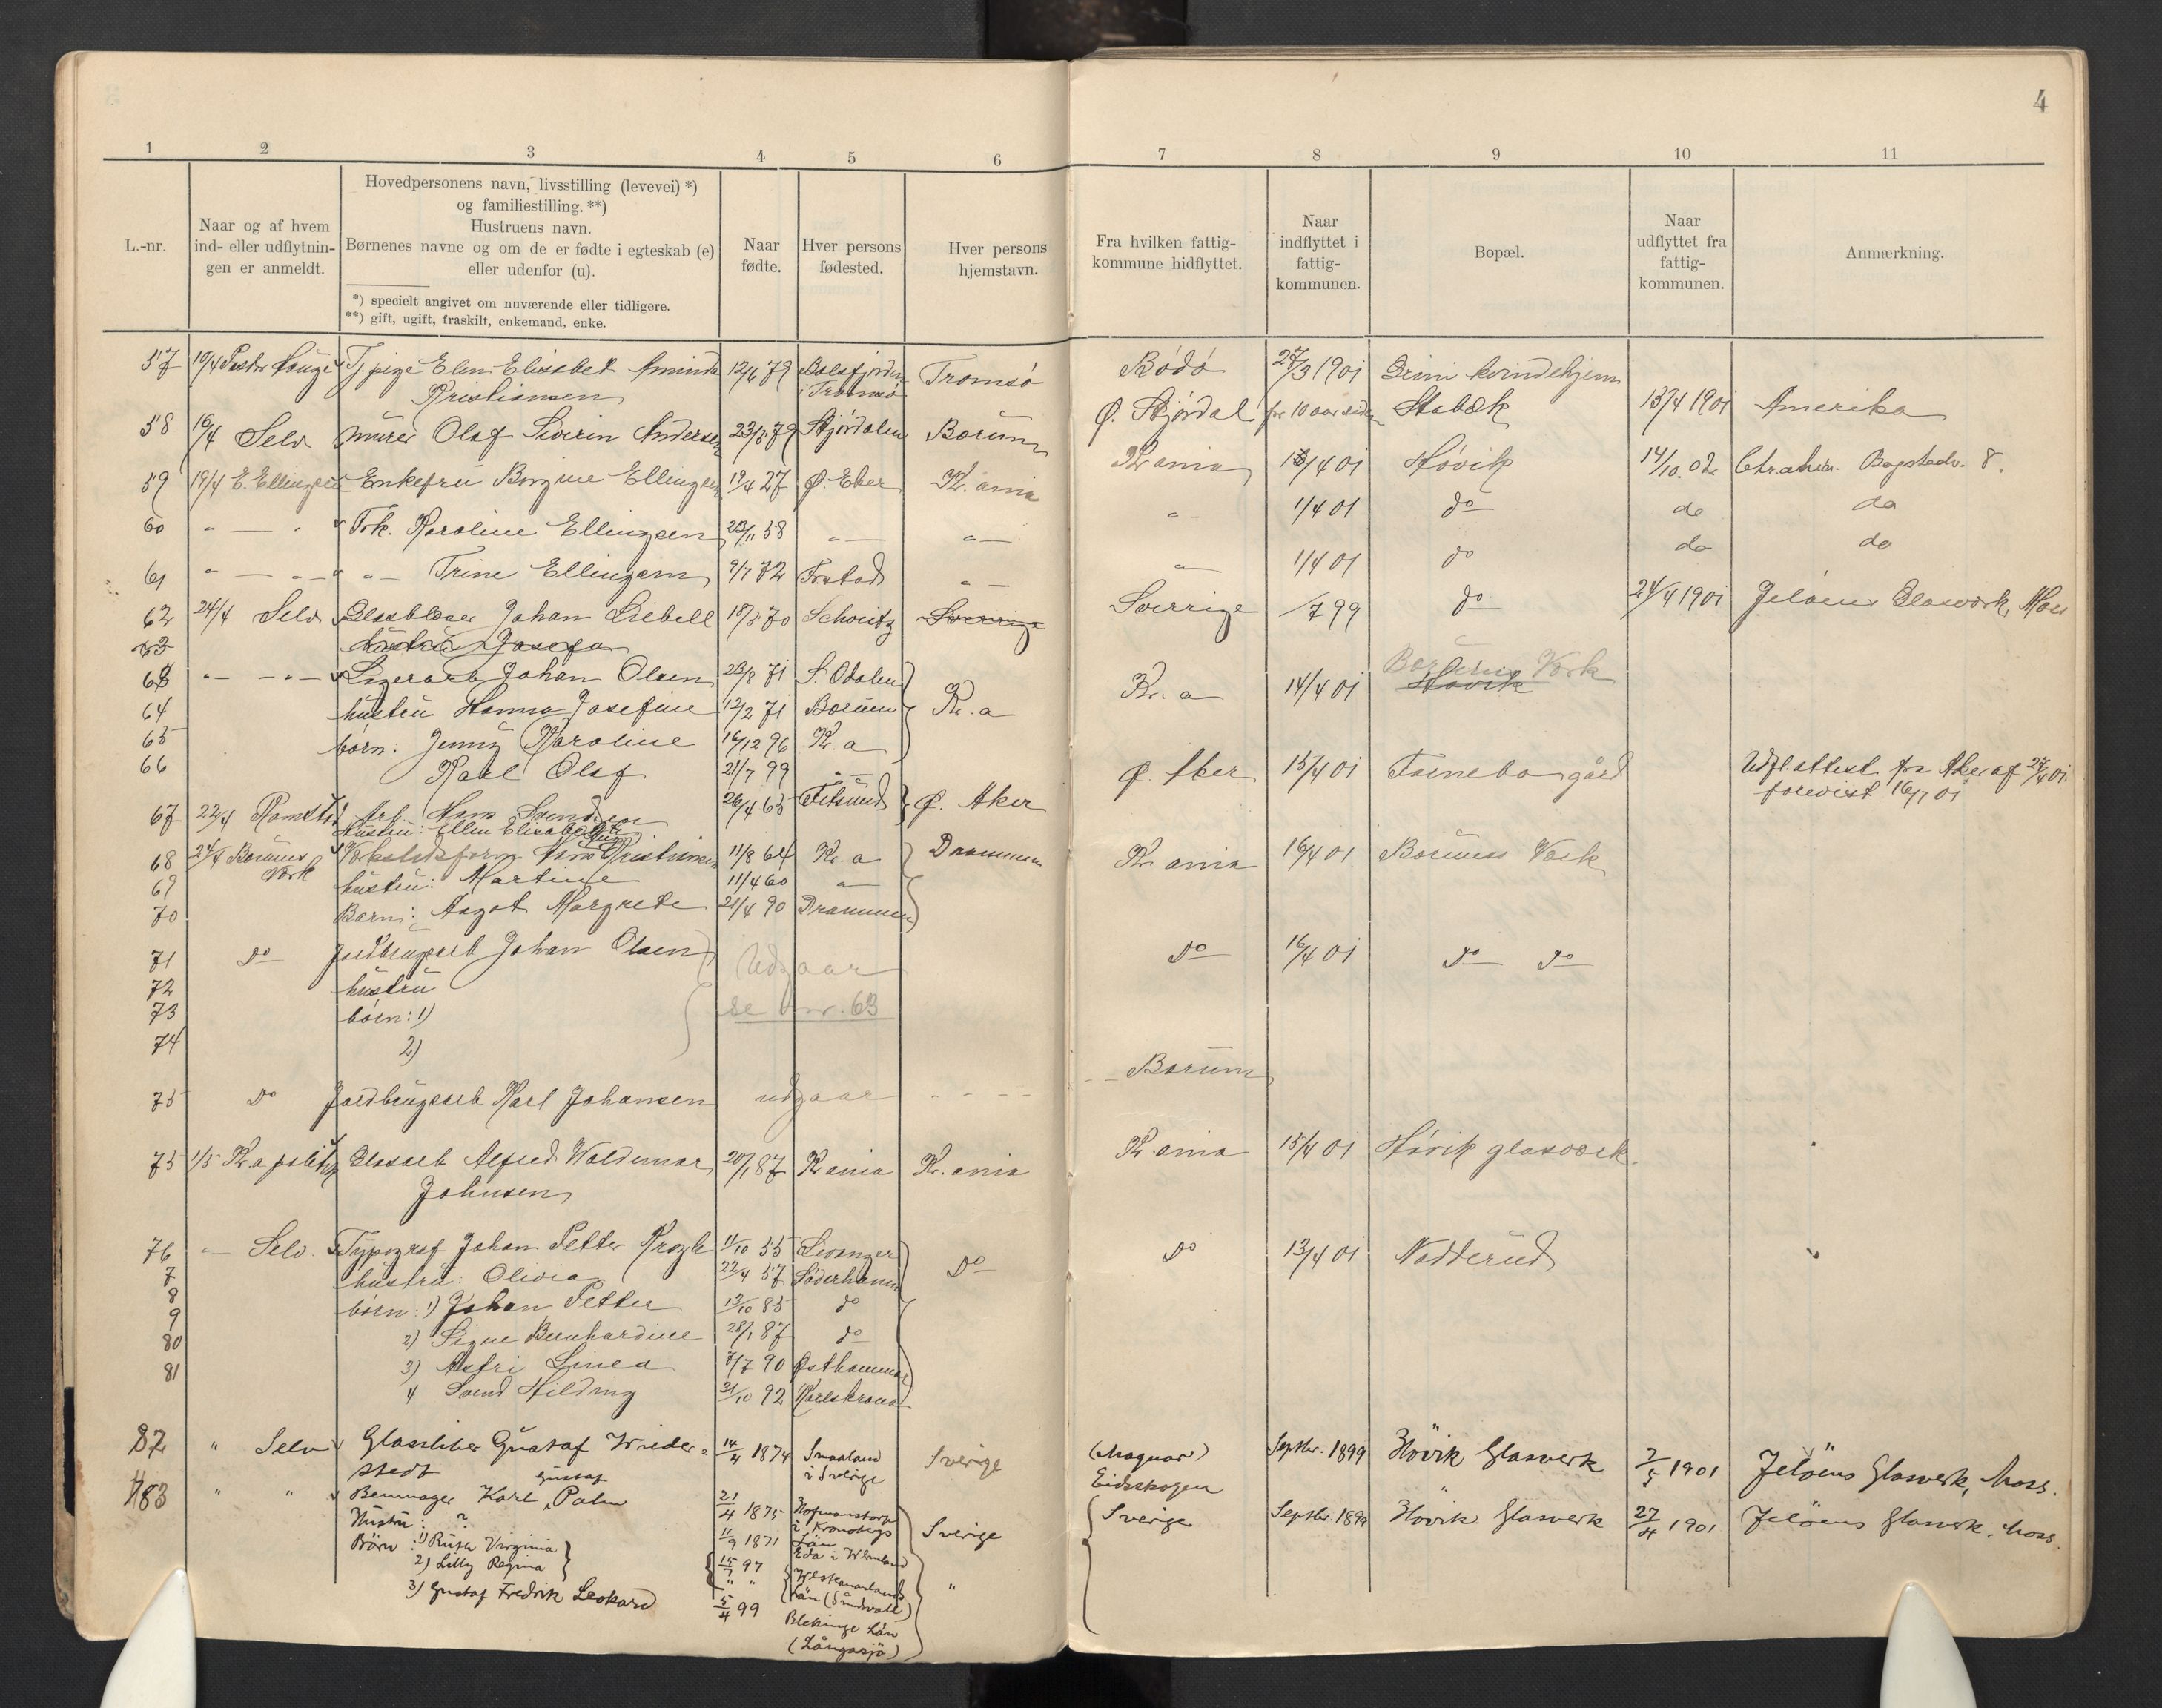 4
1 2 3 4 5 6 7 8 9 10 11
L.-nr.
Naar og af hvem
ind- eller udflytnin-
gen er anmeldt.
Hovedpersonens navn, livsstilling (levevei) *)
og familiestilling. **)
Hustruens navn.
Børnenes navne og om de er fødte i egteskab (e)
eller udenfor (u).
*) specielt angivet om nuværende eller tidligere.
**) gift, ugift, fraskilt, enkemand, enke.
Naar
fødte.
Hver persons
fødested.
Hver persons
hjemstavn.
Fra hvilken fattig-
kommune hidflyttet.
Naar
indflyttet i
fattig-
kommunen.
Bopæl.
Naar
udflyttet fra
fattig-
kommunen.
Anmærkning.
57 19/4 Pastor Hauge Tj.pige Elen Elisabet Aminda 12/6 79 Balsfjorden Tromsö Bodö 27/3 1901 Grini kvindehjem
Kristiansen i Tromsö
58 16/4 Selv murer Olaf Severin Andersen 23/5 79 Stjördalen Bærum Ø. Stjördal for 10 aar siden Stabæk 13/4 1901 Amerika
59 19/4 E. Ellingsen Enkefru Borgine Ellingsen 19/4 27 Ø. Eker Kr.ania Kr.ania 1/4 01 Hövik 14/10 02 Chrania. Bogstadv. 8.
60 " — " Frk. Karoline Ellingsen 23/11 58 " — " — " — 1/4 01 do do do
61 " — " — " — Trine Ellingsen 9/7 72 " — " — 1/4 01 do do do
62 24/4 Selv Glasblæser Johan Liebell 18/5 70 Schweitz Sverrige Sverrige /7 99 do 24/4 1901 Jelöens Glasværk, Moss
63 hustru Josefa
63 " — " — Sygerarb Johan Olsen 23/8 71 S. Odalen Kr.a Kr.a 14/4 01 Hövik Bærums Værk
64 hustru Hanna Josefine 12/2 71 Bærum
65 börn: Jenny Karoline 16/12 96 Kr.a
66 Karl Olaf 21/7 99 " —
67 22/4 Ramstad Arb. Hans Svendsen 26/4 65 Fetsund Ø. Aker Ø. Aker 15/4 01 Fornebo gård Udfl.attest fra Aker af 27/4 01.
Hustru: Ellen Elisabeth forevist 16/7 01
68 24/4 Bærums Værk Værkstedsform Hans Kristiansen 11/8 64 Kr.a Drammen Kr.ania 16/4 01 Bærums Værk
69 hustru: Martine 11/4 60 " —
70 Barn: Aagot Margrete 21/4 90 Drammen
71 Do Jordbrugsarb Johan Olsen Udgaar Do 16/4 01 Do Do
72 hustru
73 börn: 1) se l.nr. 63
74 2)
75 Do Jordbrugsarb Karl Johansen udgaar - - - - Bærum
75 1/5 Kr.a politik. Glasarb Alfred Valdemar 20/1 87 Kr.ania Kr.ania Kr.ania 15/4 01 Hövik glasværk
Johnsen
76 " — Selv. Typograf Johan Petter Krogh 11/10 55 Levanger Do Do 13/4 01 Nadderud
7 hustru: Olivia 22/4 57 Söderhamn
8 börn: 1) Johan Petter 13/10 85 do
9 2) Signe Bernhardine 28/1 87 do
80 3) Astri Linea 7/7 90 Østhammar
81 4 Svend Hilding 31/10 92 Karlskrona
82 " Selv Glassliber Gustaf Wieder= 14/4 1874 Smaaland Sverige (Magnor) Septbr. 1899 Hövik Glasverk 2/5 1901 Jelöens Glasverk, Moss.
stedt i Sverige Eidskogen
83 " " Benmager Karl Gustaf Palm 21/4 1875 Hofmanstorp Sverige Sverige Septbr. 1899 Hövik Glasverk 27/4 1901 Jelöens Glasverk, Moss.
Hustru: ? 11/9 1871 i Kronobergs Län
Börn: 1) Ruth Virginia Eda i Wermland
2) Lilly Regina 15/7 97 Westernorlands "
" " Län (Sundsvall)
3) Gustaf Fredrik Leokard 5/4 99 Blekinge Län
(Långasjö)